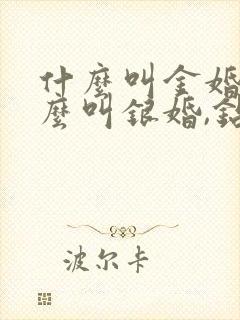 什麼叫金婚
麼叫銀婚,鉆
波尔卡